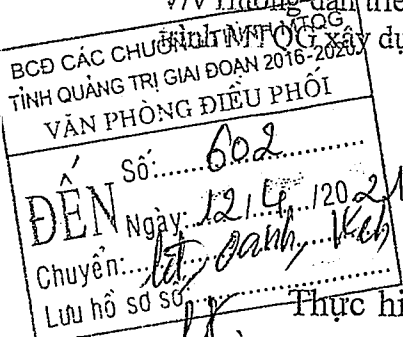 V/v Hướng dẫn triể
trình MTQG xây dự
BCĐ CÁC CHƯƠNG TRÌNH MTQG
TỈNH QUẢNG TRỊ GIAI ĐOẠN 2016-2020
VĂN PHÒNG ĐIỀU PHỐI
ĐẾN
Số: 602
Ngày: 12/4/2021
Chuyển: Oanh,
Lưu hồ sơ số
Thực hi